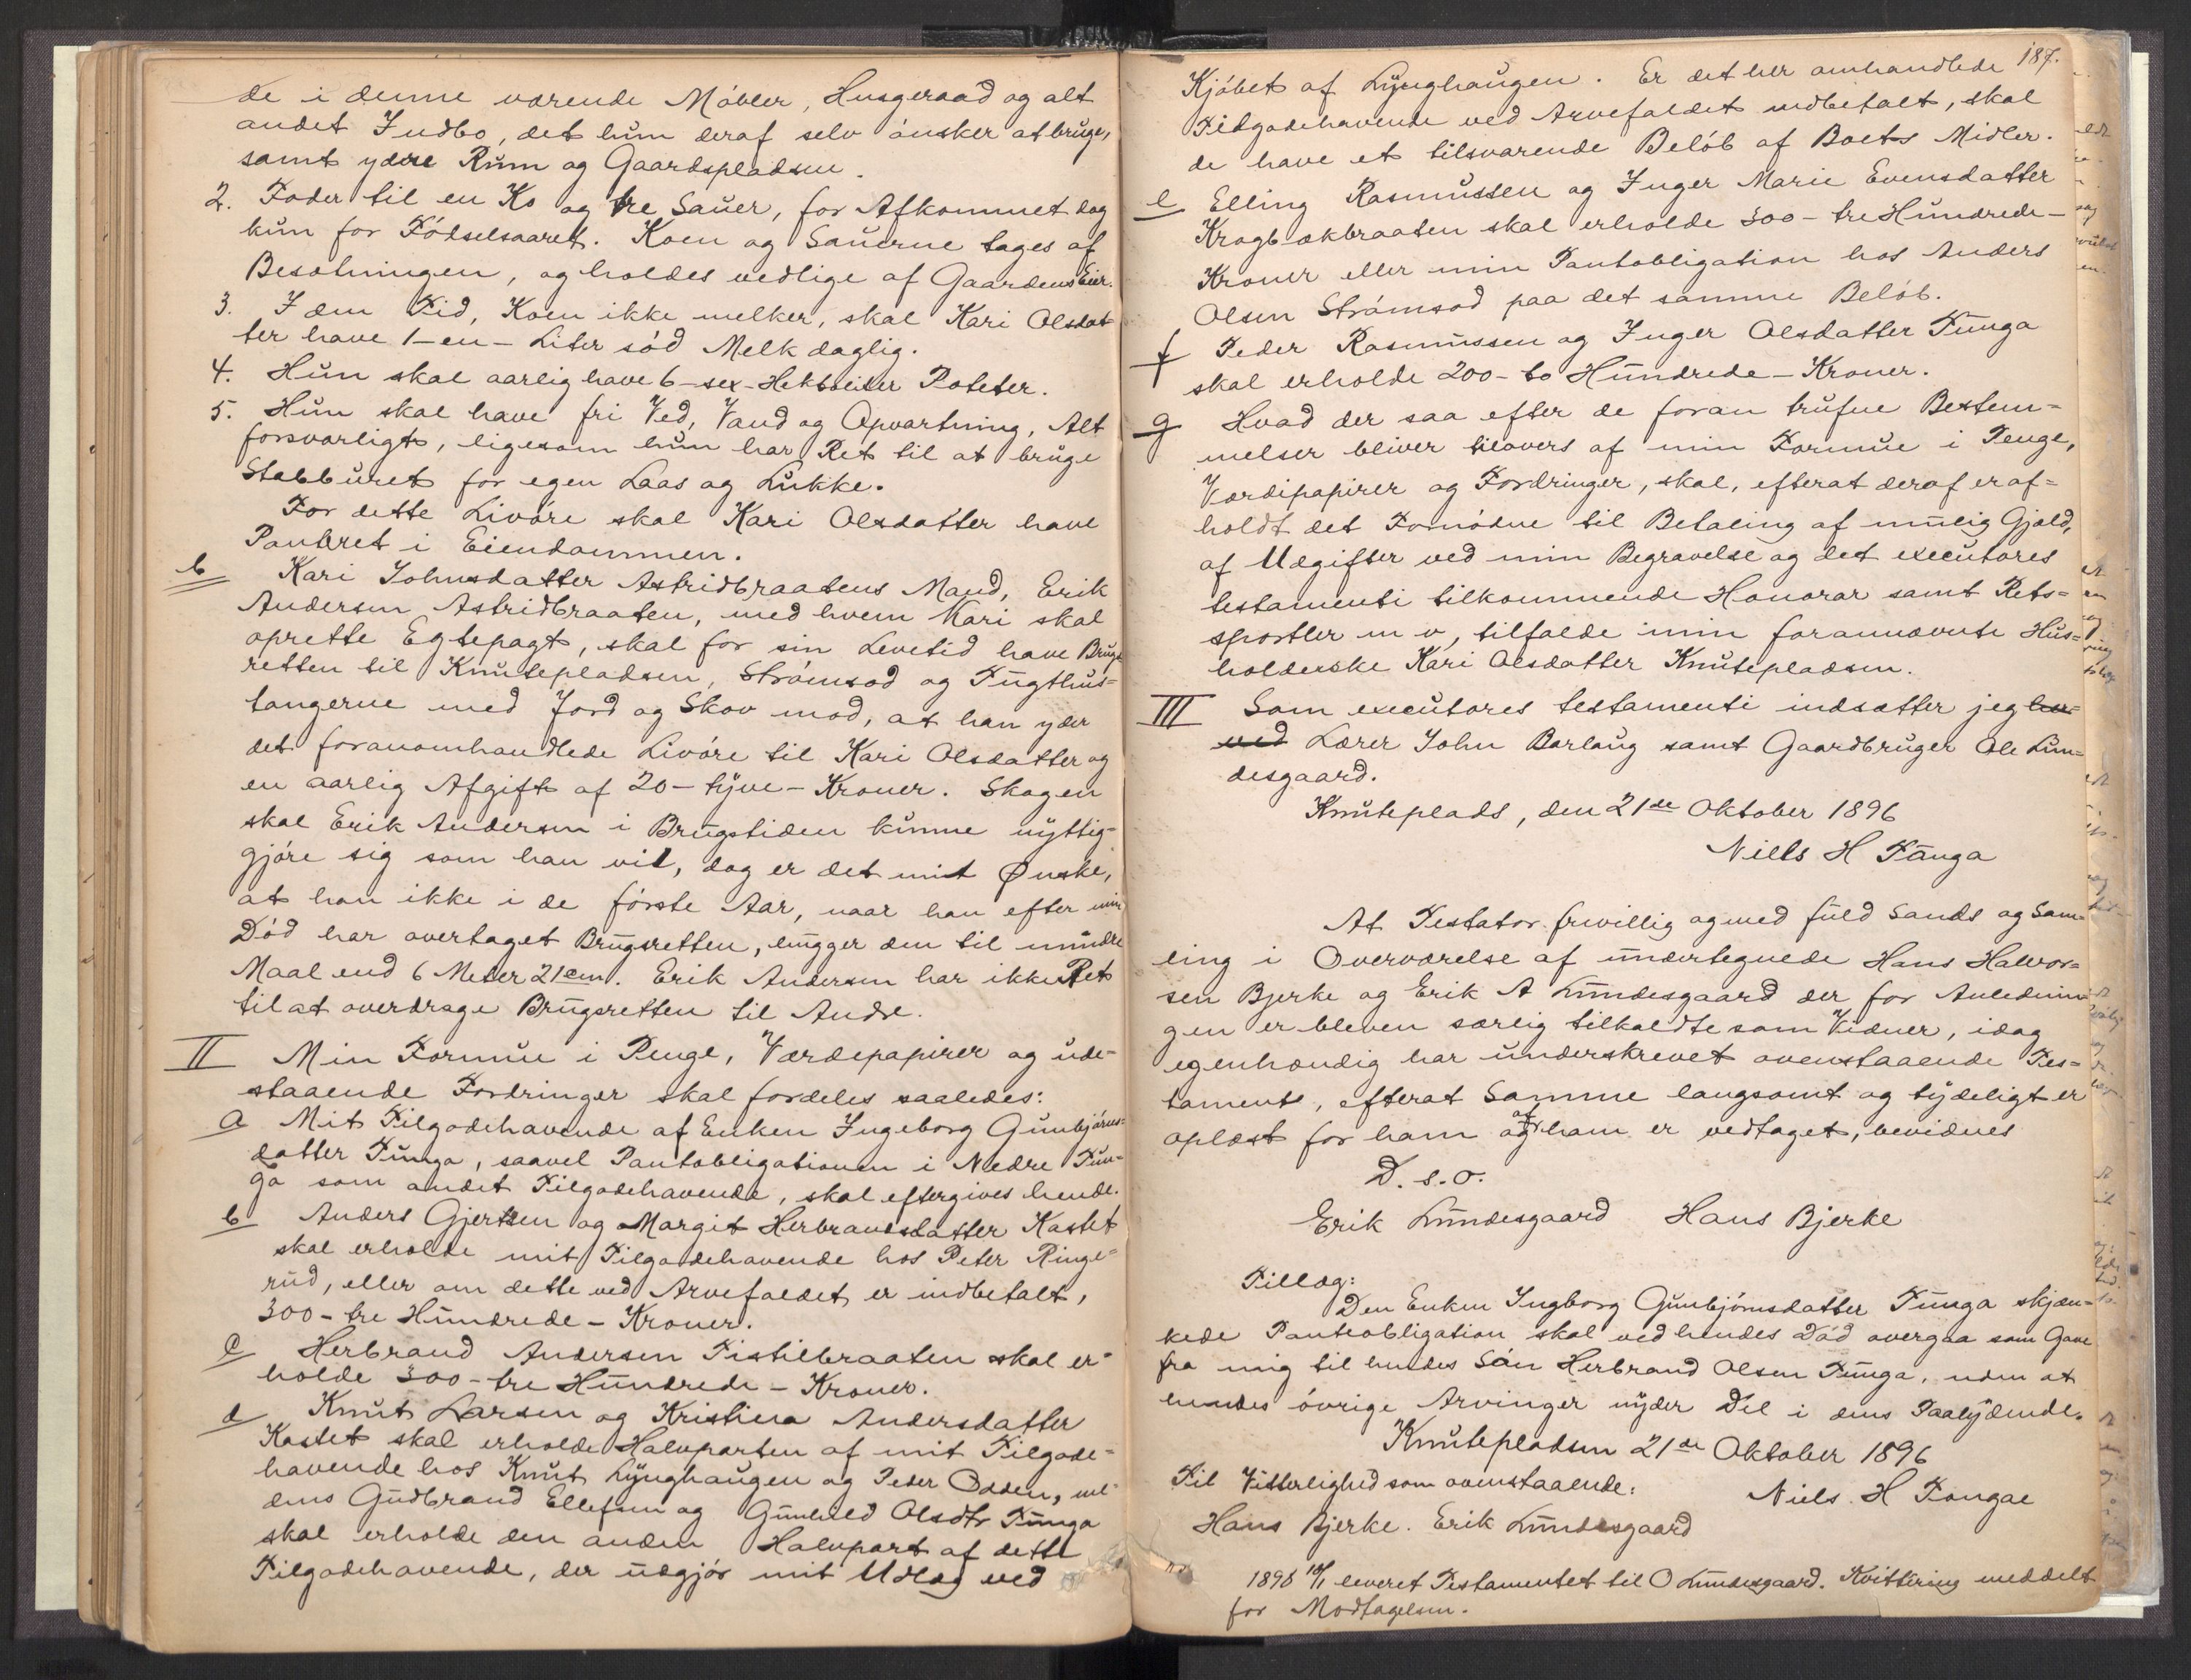 de i denne værende Möbler, Husgeraad og alt
andet Indbo, det hun deraf selv önsker at bruge,
samt ydre Rum og Gaardspladsen.
2. Foder til en Ko og tre Sauer, for Afkommet dog
kun for Födselsaaret. Koen og Sauerne tages af
Besætningen, og holdes vedlige af Gaardens Eier.
3. I den Tid, Koen ikke melker, skal Kari Olsdat-
ter have 1-en-Liter söd Melk daglig.
4. Hun skal aarlig have 6-sex-Hektoliter Poteter.
5. Hun skal have fri Ved, Vand og Opvartning, Alt
forsvarligt, ligesom hun har Ret til at bruge
Stabburet for egen Laas og Lukke.
For dette Livöre skal Kari Olsdatter have
Panteret i Eiendommen.
b Kari Johnsdatter Astridbraatens Mand, Erik
Andersen Astridbraaten, med hvem Kari skal
oprette Egtepagt, skal for sin Levetid have Brugs
retten til Knutepladsen, Strömsod og Tugthus=
tangerne med Jord og Skov mod, at han yder
det foranomhandlede Livöre til Kari Olsdatter og
en aarlig Afgift af 20-tyve-Kroner. Skogen
skal Erik Andersen i Brugstiden kunne nyttig=
gjöre sig som han vil, dog er det mit Ønske,
at han ikke i de förste Aar, naar han efter min
Död har overtaget Brugsretten, hugger den til mindre
Maal end 6 Meter 21 cm. Erik Andersen har ikke Ret
til at overdrage Brugsretten til Andre.
II Min Formue i Penge, Værdepapirer og ude-
staaende Fordringer skal fordeles saaledes:
a Mit Tilgodehavende af Enken Ingeborg Gunbjörns=
datter Tunga, saavel Pantobligationen i Nedre Tun=
ga som andet Tilgodehavende, skal eftergives hende.
b Anders Gjertsen og Margit Herbrandsdatter Kastet
skal erholde mit Tilgodehavende hos Peter Ringe=
rud, eller om dette ved Arvefaldet er indbetalt,
300-tre Hundrede-Kroner.
c Herbrand Andersen Tistilbraaten skal er=
holde 300-tre Hundrede-Kroner.
d Knut Larsen og Kristina Andersdatter
Kastet skal erholde Halvparten af mit Tilgode=
havende hos Knut Lynghaugen og Peder Odden, me=
dens Gudbrand Ellefsen og Gunhild Olsdtr Tunga
skal erholde den anden Halvpart af dette
Tilgodehavende, der udgjör mit Udlæg ved
187.
Kjöbet af Lynghaugen. Er det her omhandlede
Tilgodehavende ved Arvefaldet indbetalt, skal
de have et tilsvarende Belöb af Boets Midler.
e Elling Rasmussen og Inger Marie Evensdatter
Krogbækbraaten skal erholde 300-tre Hundrede-
Kroner eller min Pantobligation hos Anders
Olsen Strömsod paa det samme Belöb.
f Peder Rasmussen og Inger Olsdatter Tunga
skal erholde 200-to Hundrede-Kroner.
g Hvad der saa efter de foran trufne Bestem=
melser bliver tilovers af min Formue i Penge,
Værdipapirer og Fordringer, skal, efterat deraf er af=
holdt det Fornödne til Betaling af mulig Gjæld,
af Udgifter ved min Begravelse og det executores
testamenti tilkommende Honorar samt Rets=
sportler m v, tilfalde min forannævnte Hus=
holderske Kari Olsdatter Knutepladsen.
III Som executores testamenti indsætter jeg her=
ved Lærer John Barlaug samt Gaardbruger Ole Lun=
desgaard.
Knuteplads, den 21de Oktober 1896
Niels H Tånga
At Testator frivillig og med fuld Sands og Sam=
ling i Overværelse af undertegnede Hans Halvor=
sen Bjerke og Erik A Lundesgaard der for Anlednin=
gen er bleven særlig tilkaldte som Vidner, idag
egenhændig har underskrevet ovenstaaende Tes=
tamente, efterat Samme langsomt og tydeligt er
oplæst for ham og af ham er vedtaget, bevidnes
D. s. o.
Erik Lundesgaard Hans Bjerke
Tillæg:
Den Enken Ingborg Gunbjörnsdatter Tunga skjæn=
kede Panteobligation skal ved hendes Död overgaa som Gave
fra mig til hendes Sön Herbrand Olsen Tunga, uden at
hendes övrige Arvinger nyder Del i dens Paalydende.
Knutepladsen 21de Oktober 1896
Til Vitterlighed som ovenstaaende: Niels H Tongae
Hans Bjerke. Erik Lundesgaard
leveret Testamentet til O Lundesgaard. Kvittering meddelt
for Modtagelsen.